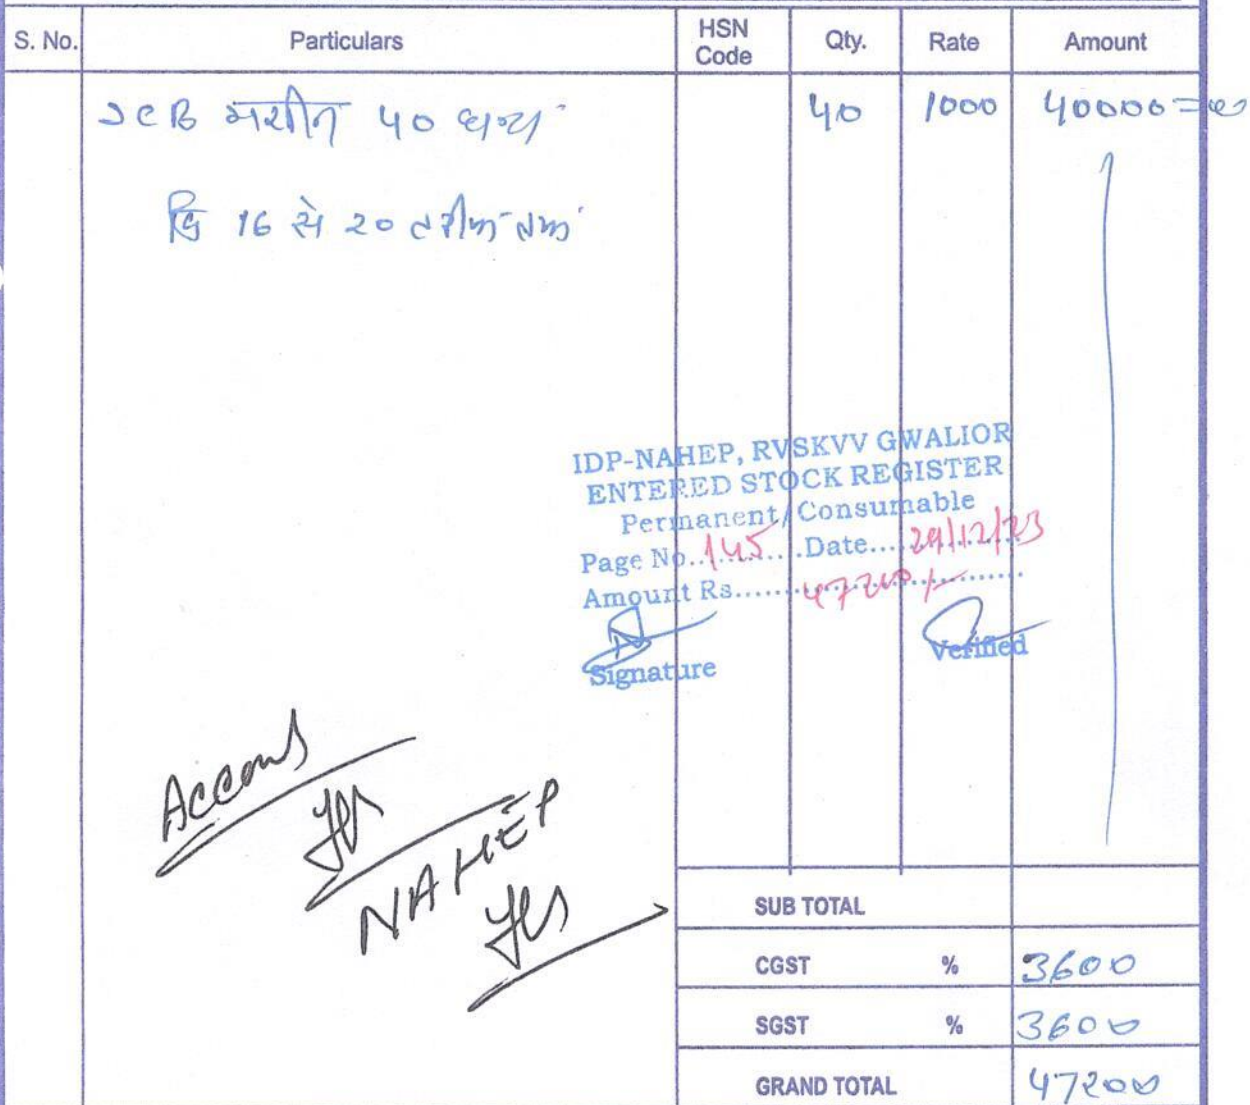 S. No. Particulars HSN Code Qty. Rate Amount
JCB मशीन 40 घन्टा 40 1000 40000=00
दि 16 से 20 तारीक तक
IDP-NAHEP, RVSKVV GWALIOR
ENTERED STOCK REGISTER
Permanent/Consumable
Page No..145.....Date....29/12/23
Amount Rs.....47200/-
Signature Verified
Accons
NAHEP
SUB TOTAL
CGST % 3600
SGST % 3600
GRAND TOTAL 47200